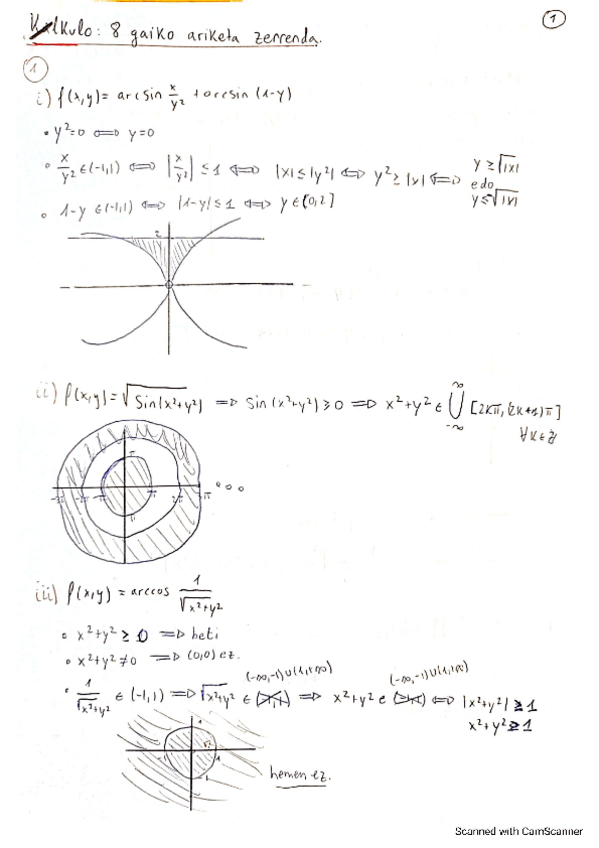 Kalkulo: 8 gaiko ariketa zerrenda.
1
1
i) f(x,y)= arcsin x/y² + arcsin (1-y)
• y²=0 ⟺ y=0
• x/y² ∈ (-1,1) ⟺ |x/y²| ≤ 1 ⟺ |x| ≤ |y²| ⟺ y² ≥ |x| ⟺ y ≥ √|x|
edo
y ≤ √|x|
• 1-y ∈ (-1,1) ⟺ |1-y| ≤ 1 ⟺ y ∈ [0,2]
2
ii) f(x,y)= √sin(x²+y²) ⟹ sin(x²+y²) ≥ 0 ⟹ x²+y² ∈ ⋃ [2kπ, (2k+1)π]
∞
-∞
∀k ∈ ℤ
iii) f(x,y) = arccos 1/√x²+y²
• x²+y² ≥ 0 ⟹ beti
• x²+y² ≠ 0 ⟹ (0,0) ez.
(-∞,-1)∪(1,+∞) (-∞,-1)∪(1,+∞)
• 1/√x²+y² ∈ (-1,1) ⟹ √x²+y² ∈ ⟹ x²+y² ∈ ⟺ |x²+y²| ≥ 1
x²+y² ≥ 1
hemen ez.
Scanned with CamScanner